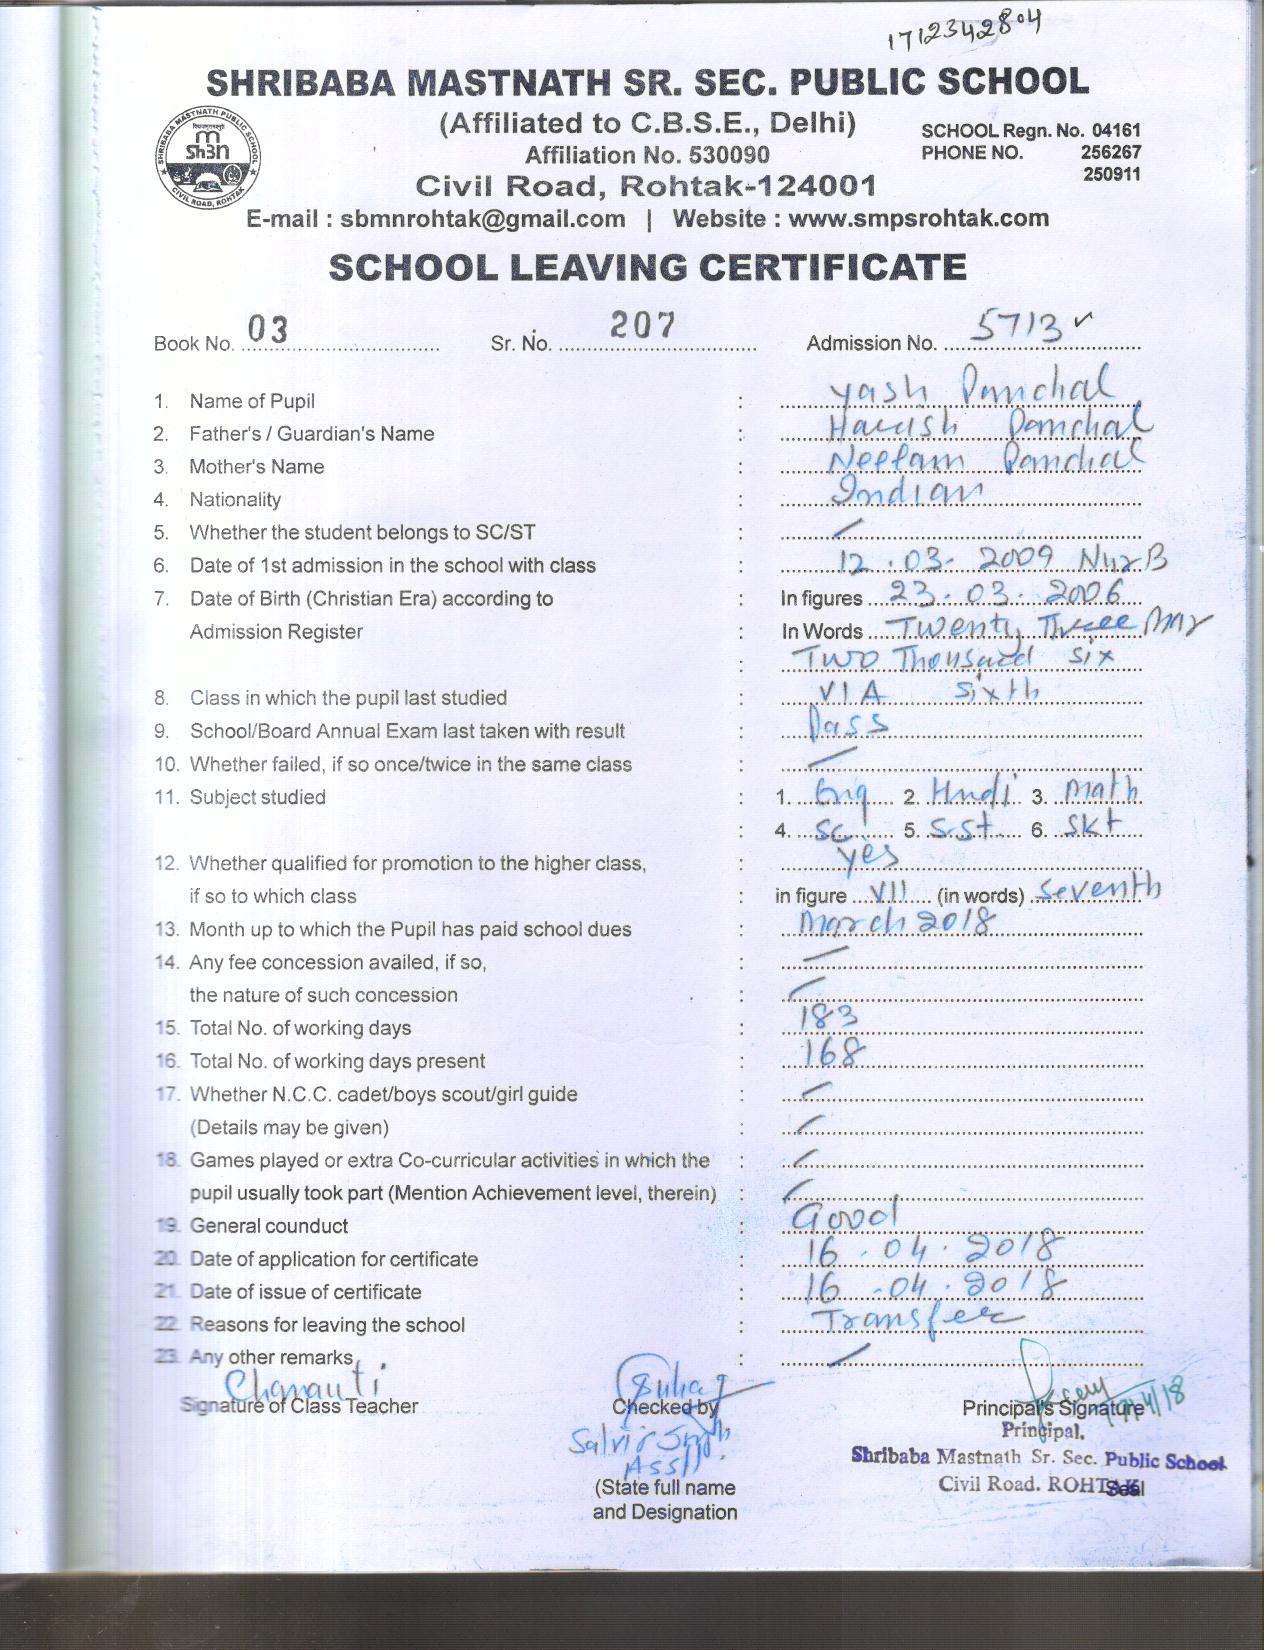 1712342804
SHRIBABA MASTNATH SR. SEC. PUBLIC SCHOOL
(Affiliated to C.B.S.E., Delhi)
Affiliation No. 530090
SCHOOL Regn. No. 04161
PHONE NO. 256267
250911
Civil Road, Rohtak-124001
E-mail : sbmnrohtak@gmail.com | Website : www.smpsrohtak.com
SHRIBABA MASTNATH PUBLIC SCHOOL
CIVIL ROAD, ROHTAK
SCHOOL LEAVING CERTIFICATE
Book No. 03 Sr. No. 207 Admission No. 5713
1. Name of Pupil : Yash Panchal
2. Father's / Guardian's Name : Harish Panchal
3. Mother's Name : Neelam Panchal
4. Nationality : Indian
5. Whether the student belongs to SC/ST :
6. Date of 1st admission in the school with class : 12.03.2009 Nur B
7. Date of Birth (Christian Era) according to : In figures 23.03.2006
Admission Register : In Words Twenty Three Mar
: Two Thousand six
8. Class in which the pupil last studied : VI A sixth
9. School/Board Annual Exam last taken with result : Pass
10. Whether failed, if so once/twice in the same class :
11. Subject studied : 1. Eng 2. Hindi 3. Math
: 4. Sc 5. S.St 6. Skt
12. Whether qualified for promotion to the higher class, : yes
if so to which class : in figure VII (in words) Seventh
13. Month up to which the Pupil has paid school dues : March 2018
14. Any fee concession availed, if so, :
the nature of such concession :
15. Total No. of working days : 183
16. Total No. of working days present : 168
17. Whether N.C.C. cadet/boys scout/girl guide :
(Details may be given) :
18. Games played or extra Co-curricular activities in which the :
pupil usually took part (Mention Achievement level, therein) :
19. General counduct : Good
20. Date of application for certificate : 16.04.2018
21. Date of issue of certificate : 16.04.2018
22. Reasons for leaving the school : Transfer
23. Any other remarks :
Signature of Class Teacher Checked by Principal's Signature
Principal,
Shribaba Mastnath Sr. Sec. Public School
Civil Road. ROHTAK
Seal
(State full name
and Designation